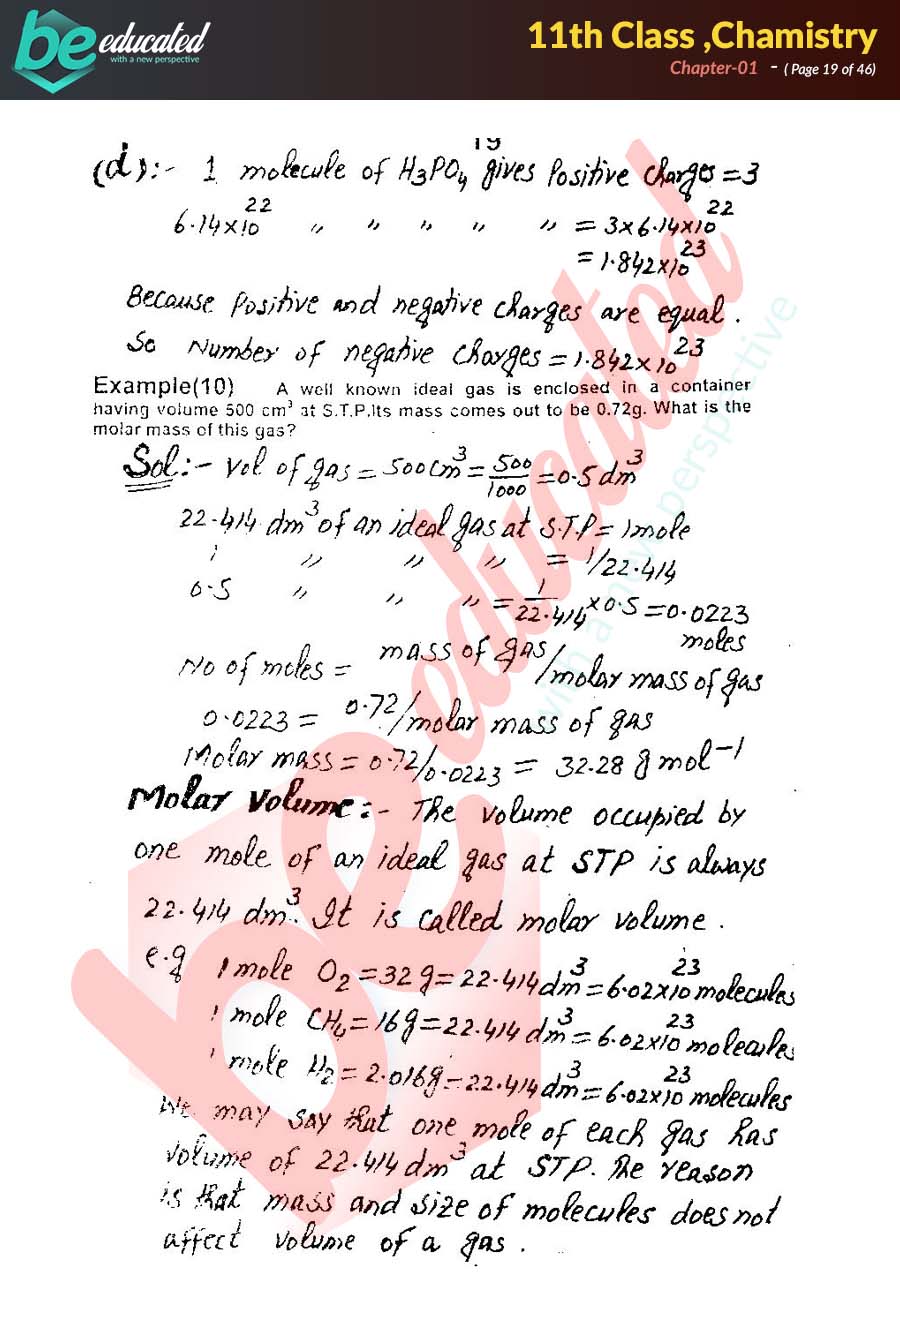 be educated
with a new perspective
11th Class ,Chamistry
Chapter-01 - ( Page 19 of 46)
19
(d):- 1 molecule of H₃PO₄ gives Positive charges = 3
6.14×10²² " " " " " = 3×6.14×10²²
= 1.842×10²³
Because Positive and negative charges are equal.
So Number of negative charges = 1.842×10²³
Example(10) A well known ideal gas is enclosed in a container
having volume 500 cm³ at S.T.P.Its mass comes out to be 0.72g. What is the
molar mass of this gas?
Sol:- Vol. of gas = 500cm³ = 500/1000 = 0.5 dm³
22.414 dm³ of an ideal gas at S.T.P = 1mole
1 " " " = 1/22.414
0.5 " " " = 1/22.414 × 0.5 = 0.0223
moles
No of moles = mass of gas/molar mass of gas
0.0223 = 0.72/molar mass of gas
Molar mass = 0.72/0.0223 = 32.28 g mol⁻¹
Molar Volume:- The volume occupied by
one mole of an ideal gas at STP is always
22.414 dm³. It is called molar volume.
e.g 1 mole O₂ = 32g = 22.414 dm³ = 6.02×10²³ molecules
1 mole CH₄ = 16g = 22.414 dm³ = 6.02×10²³ molecules
1 mole H₂ = 2.016g = 22.414 dm³ = 6.02×10²³ molecules
We may say that one mole of each gas has
volume of 22.414 dm³ at STP. The reason
is that mass and size of molecules does not
affect volume of a gas.
be educated
with a new perspective